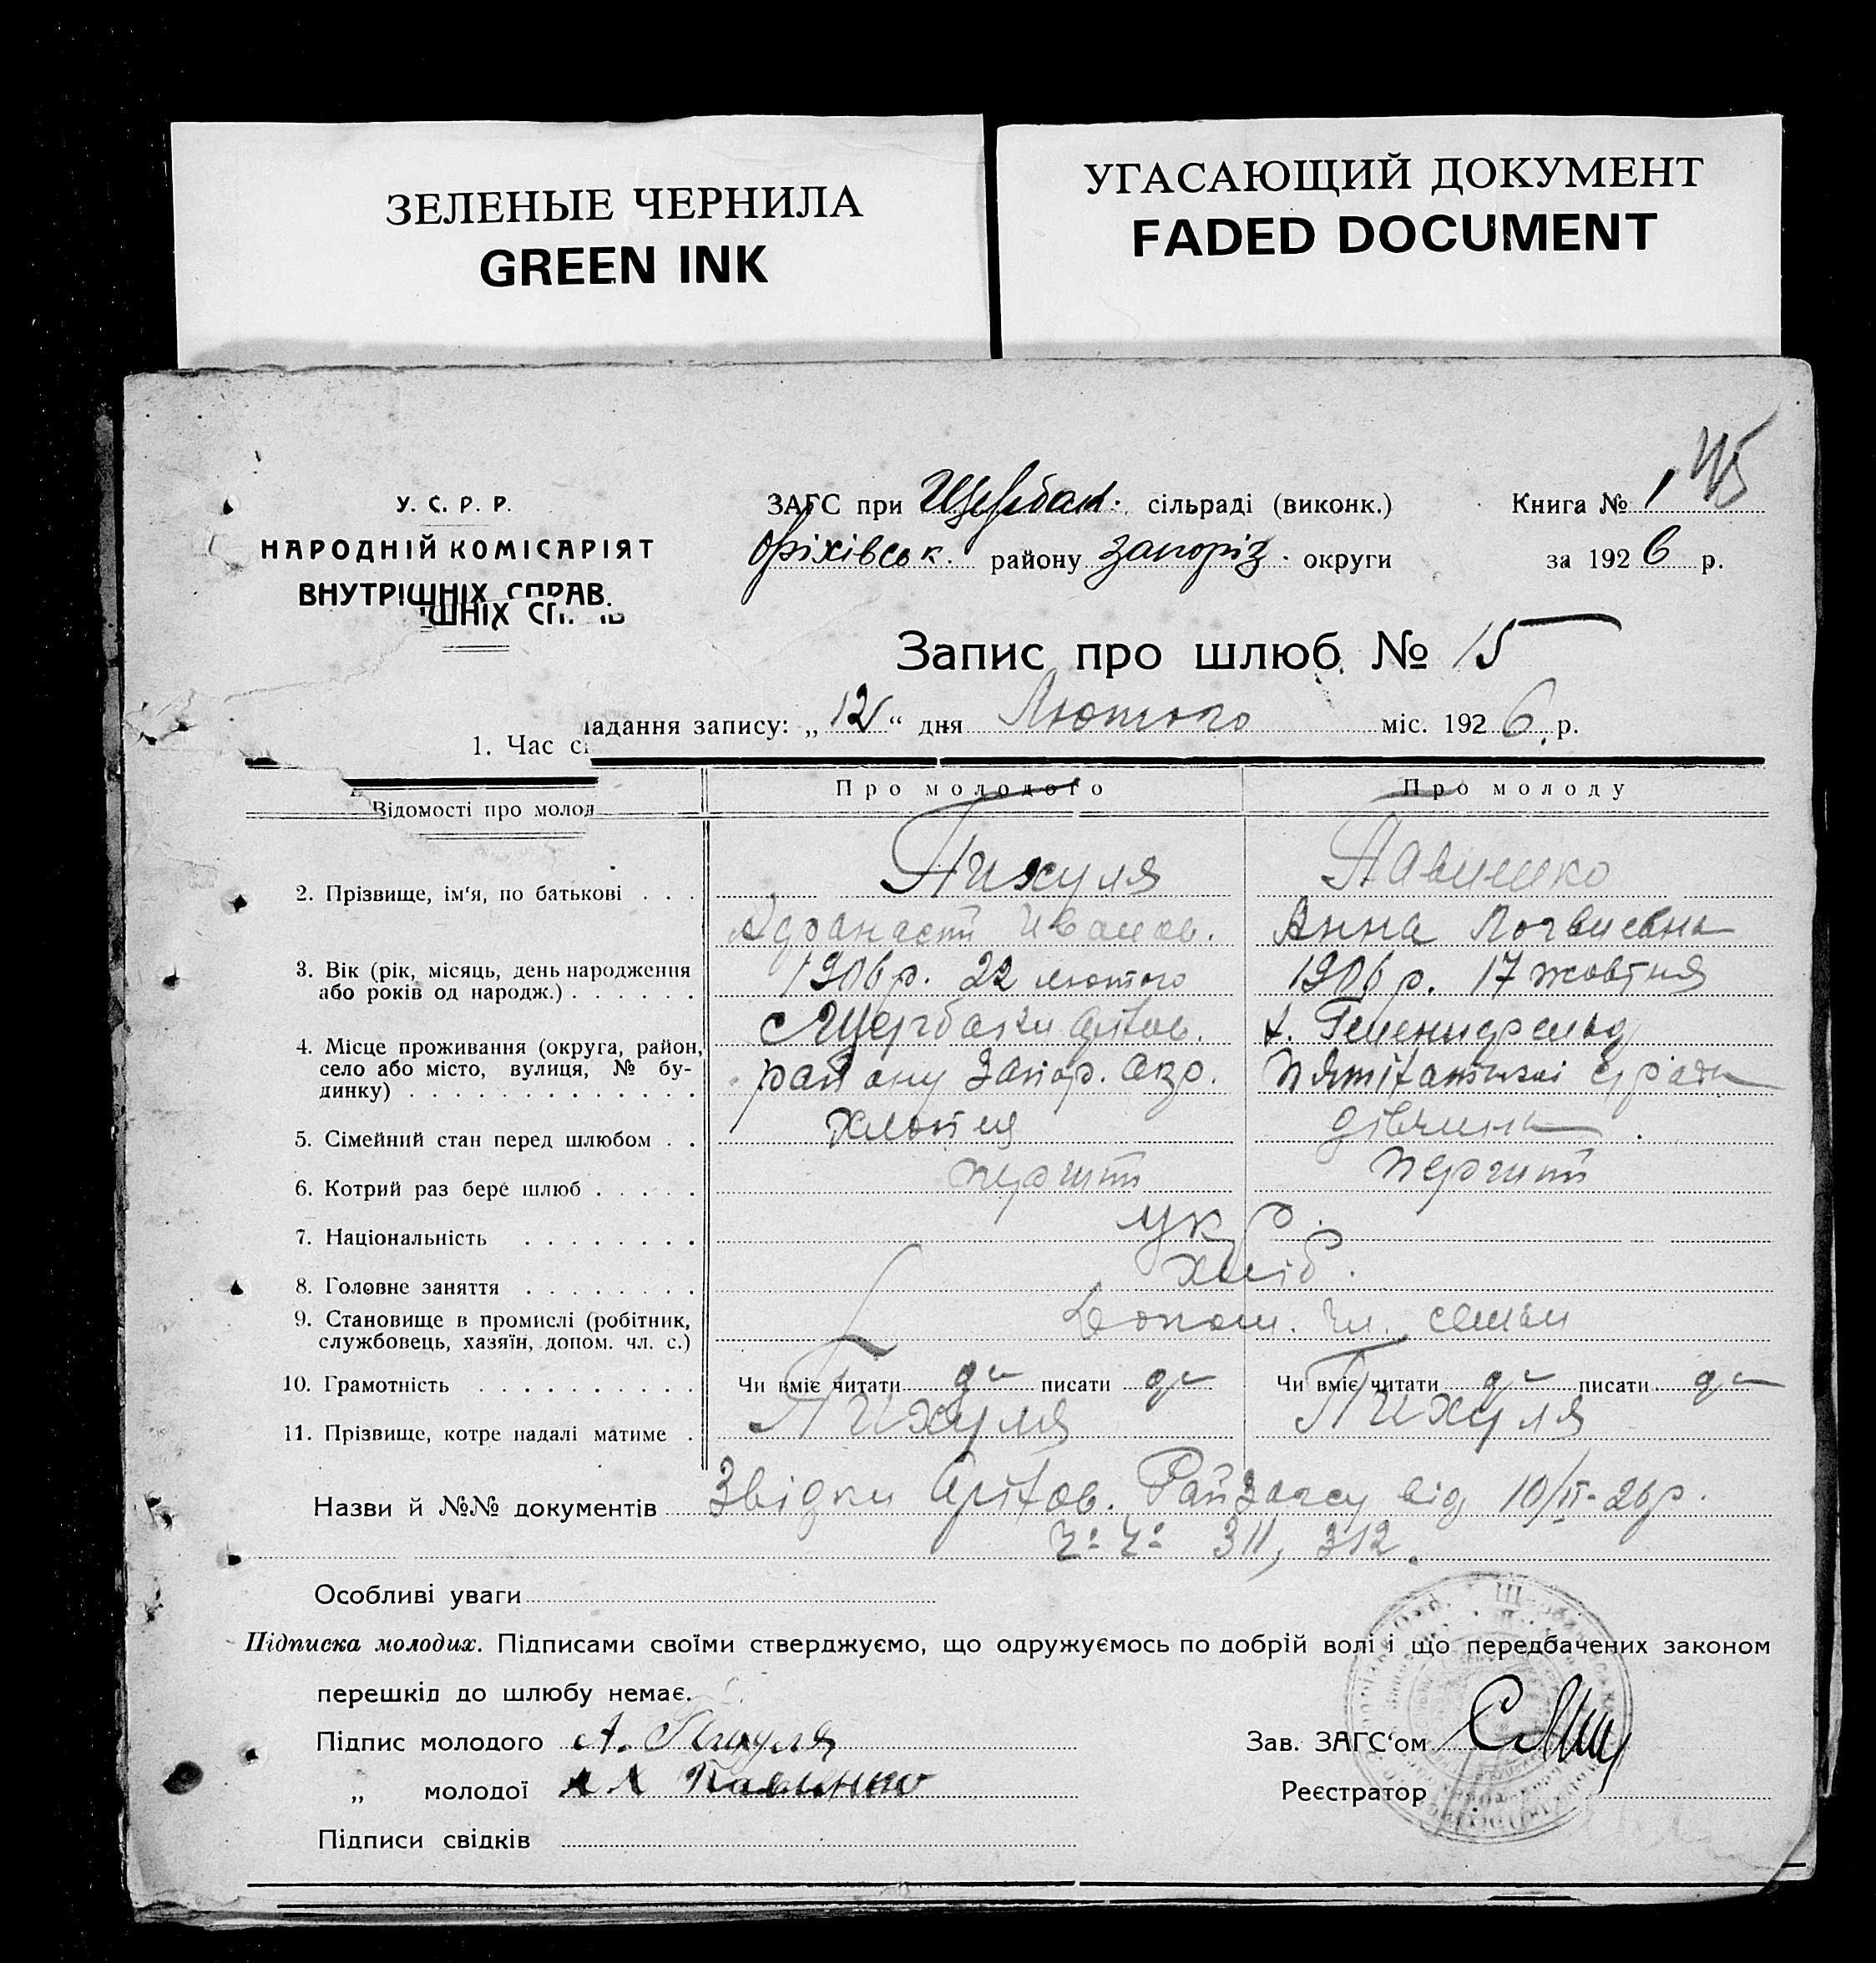 ЗЕЛЕНЫЕ ЧЕРНИЛА
GREEN INK
УГАСАЮЩИЙ ДОКУМЕНТ
FADED DOCUMENT
У. С. Р. Р.
НАРОДНІЙ КОМІСАРІЯТ
ВНУТРІШНІХ СПРАВ.
ЗАГС при Щербак. сільраді (виконк.)
Оріхівськ. району Запоріз. округи
Книга № 1
за 1926 р.
Запис про шлюб № 15
1. Час складання запису: „12“ дня Лютого міс. 1926 р.
Відомості про молод
Про молодого
Про молоду
2. Прізвище, ім'я, по батькові
Пихуля
Павленко
Афанасій Иванов.
Анна Логвиевна
3. Вік (рік, місяць, день народження або років од народж.)
1906 р. 22 лютого
1906 р. 17 жовтня
4. Місце проживання (округа, район, село або місто, вулиця, № будинку)
с Щербаки Оріхов.
району Запор. окр.
5. Сімейний стан перед шлюбом
хлопец
дівчина
6. Котрий раз бере шлюб
перший
перший
7. Національність
укр.
8. Головне заняття
хліб.
9. Становище в промислі (робітник, службовець, хазяїн, допом. чл. с.)
Допом. чл. семьи
10. Грамотність
Чи вміє читати да писати да
Чи вміє читати да писати да
11. Прізвище, котре надалі матиме
Пихуля
Пихуля
Назви й №№ документів Звідки Оріхов. Райзагсу від 10/II-26 р.
311, 312.
Особливі уваги
Підписка молодих. Підписами своїми стверджуємо, що одружуємось по добрій волі і що передбачених законом
перешкід до шлюбу немає.
Підпис молодого А. Пихуля
„ молодої Павленко
Підписи свідків
Зав. ЗАГС'ом
Реєстратор